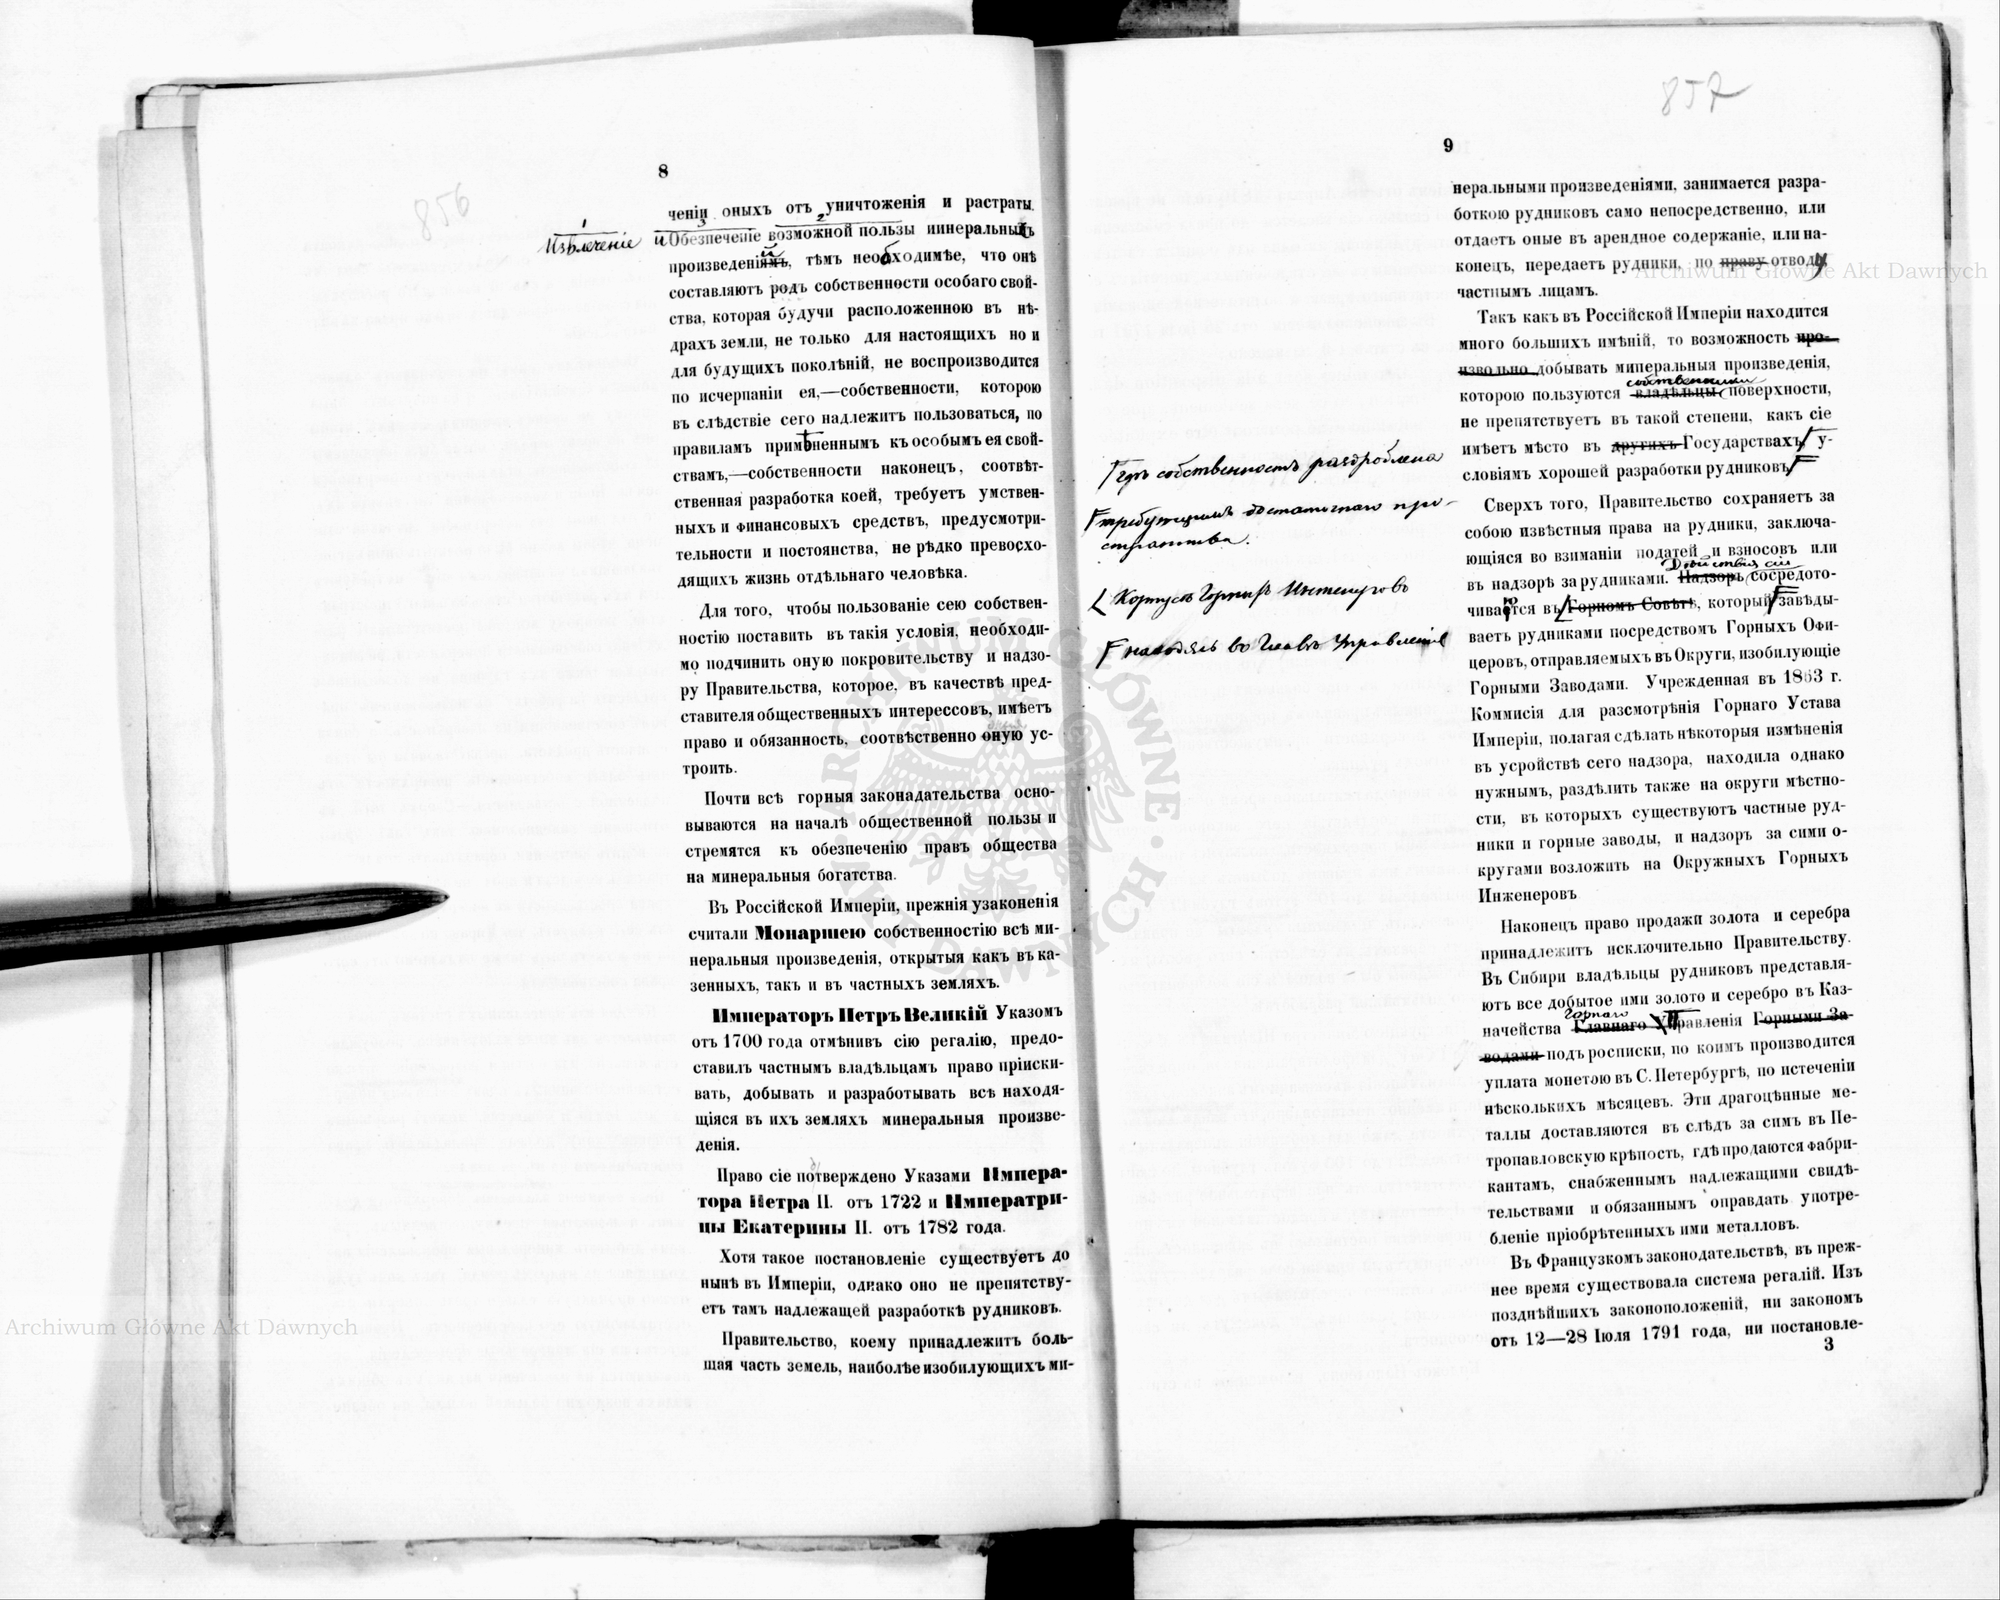 856
8
ченіи оныхъ отъ уничтоженія и растраты.
Извлеченіе и Обезпеченіе возможной пользы минеральныхъ
произведеніямъ, тѣмъ необходимѣе, что онѣ
составляютъ родъ собственности особаго свой-
ства, которая будучи расположенною въ нѣ-
драхъ земли, не только для настоящихъ но и
для будущихъ поколѣній, не воспроизводится
по исчерпаніи ея,—собственности, которою
въ слѣдствіе сего надлежитъ пользоваться, по
правиламъ примѣненнымъ къ особымъ ея свой-
ствамъ,—собственности наконецъ, соотвѣт-
ственная разработка коей, требуетъ умствен-
ныхъ и финансовыхъ средствъ, предусмотри-
тельности и постоянства, не рѣдко превосхо-
дящихъ жизнь отдѣльнаго человѣка.
Для того, чтобы пользованіе сею собствен-
ностію поставить въ такія условія, необходи-
мо подчинить оную покровительству и надзо-
ру Правительства, которое, въ качествѣ пред-
ставителя общественныхъ интерессовъ, имѣетъ
право и обязанность, соотвѣственно оную ус-
троить.
Почти всѣ горныя законадательства осно-
вываются на началѣ общественной пользы и
стремятся къ обезпеченію правъ общества
на минеральныя богатства.
Въ Россійской Имперіи, прежнія узаконенія
считали Монаршею собственностію всѣ ми-
неральныя произведенія, открытыя какъ въ ка-
зенныхъ, такъ и въ частныхъ земляхъ.
Императоръ Петръ Великій Указомъ
отъ 1700 года отмѣнивъ сію регалію, предо-
ставилъ частнымъ владѣльцамъ право пріиски-
вать, добывать и разработывать всѣ находя-
щіяся въ ихъ земляхъ минеральныя произве-
денія.
Право сіе потверждено Указами Импера-
тора Петра II. отъ 1722 и Императри-
цы Екатерины II. отъ 1782 года.
Хотя такое постановленіе существуетъ до
нынѣ въ Имперіи, однако оно не препятству-
етъ тамъ надлежащей разработкѣ рудниковъ.
Правительство, коему принадлежитъ боль-
шая часть земель, наиболѣе изобилующихъ ми-
857
9
неральными произведеніями, занимается разра-
боткою рудниковъ само непосредственно, или
отдаетъ оные въ арендное содержаніе, или на-
конецъ, передаетъ рудники, по праву отводу
частнымъ лицамъ.
Такъ какъ въ Россійской Имперіи находится
много большихъ имѣній, то возможность про-
извольно добывать минеральныя произведенія,
собственники
которою пользуются владѣльцы поверхности,
не препятствуетъ въ такой степени, какъ сіе
имѣетъ мѣсто въ другихъ Государствахъ у-
словіямъ хорошей разработки рудниковъ
гдѣ собственность раздроблена
требующимъ достаточнаго про-
странства.
Сверхъ того, Правительство сохраняетъ за
собою извѣстныя права на рудники, заключа-
ющіяся во взиманіи податей и взносовъ или
Дѣйствія сіи
въ надзорѣ за рудниками. Надзоръ сосредото-
чиваются въ Горномъ Совѣтѣ, который завѣды-
Корпусѣ Горныхъ Инженеровъ
ваетъ рудниками посредствомъ Горныхъ Офи-
церовъ, отправляемыхъ въ Округи, изобилующіе
Горными Заводами. Учрежденная въ 1863 г.
Коммисія для разсмотрѣнія Горнаго Устава
Имперіи, полагая сдѣлать нѣкоторыя измѣненія
въ усройствѣ сего надзора, находила однако
нужнымъ, раздѣлить также на округи мѣстно-
сти, въ которыхъ существуютъ частные руд-
ники и горные заводы, и надзоръ за сими о-
кругами возложить на Окружныхъ Горныхъ
Инженеровъ
Наконецъ право продажи золота и серебра
принадлежитъ исключительно Правительству.
Въ Сибири владѣльцы рудниковъ представля-
ютъ все добытое ими золото и серебро въ Каз-
Горнаго
начейства Главнаго Управленія Горными За-
водами подъ росписки, по коимъ производится
уплата монетою въ С. Петербургѣ, по истеченіи
нѣсколькихъ мѣсяцевъ. Эти драгоцѣнные ме-
таллы доставляются въ слѣдъ за симъ въ Пе-
тропавловскую крѣпость, гдѣ продаются фабри-
кантамъ, снабженнымъ надлежащими свидѣ-
тельствами и обязаннымъ оправдать употре-
бленіе пріобрѣтенныхъ ими металловъ.
Въ Французкомъ законодательствѣ, въ преж-
нее время существовала система регалій. Изъ
позднѣйшихъ законоположеній, ни закономъ
отъ 12—28 Іюля 1791 года, ни постановле-
3
Archiwum Główne Akt Dawnych
Archiwum Główne Akt Dawnych
ARCHIWUM GŁÓWNE AKT DAWNYCH